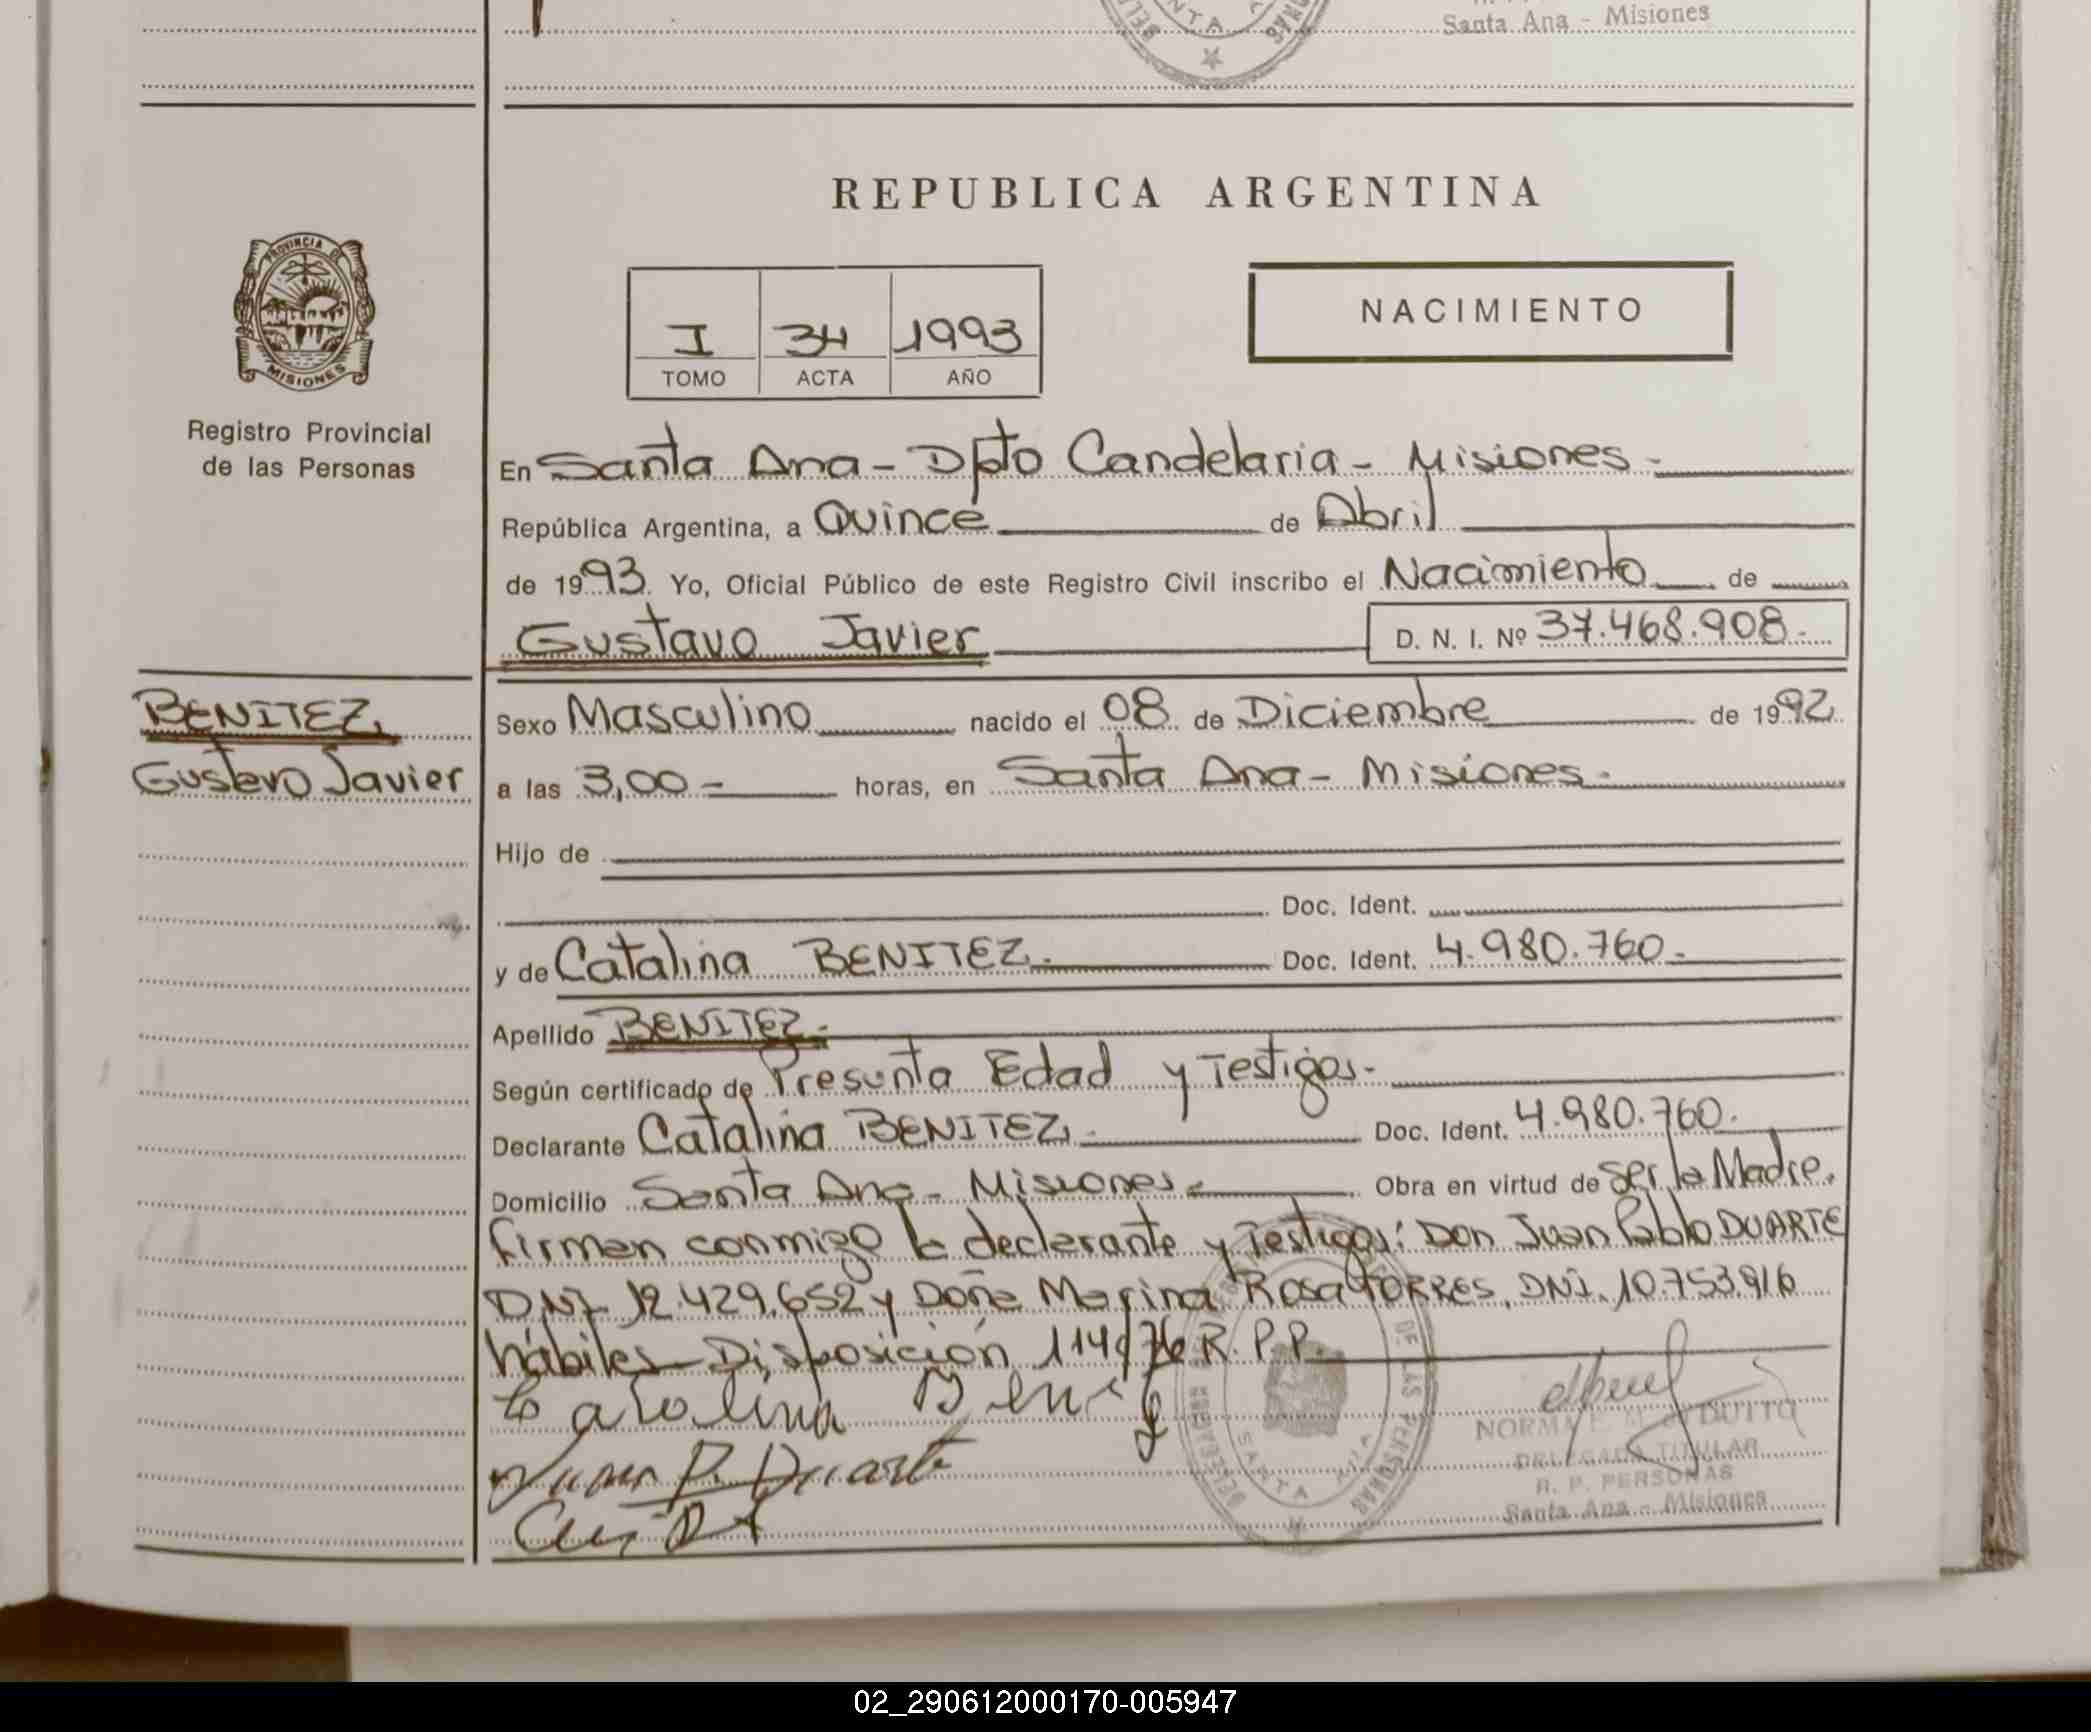 Santa Ana - Misiones
REPUBLICA ARGENTINA
PROVINCIA DE
MISIONES
Registro Provincial
de las Personas
I 34 1993
TOMO ACTA AÑO
NACIMIENTO
En Santa Ana - Dpto Candelaria - Misiones -
República Argentina, a Quince de Abril
de 1993 Yo, Oficial Público de este Registro Civil inscribo el Nacimiento de
Gustavo Javier D. N. I. Nº 37.468.908-
BENITEZ,
Gustavo Javier
Sexo Masculino nacido el 08 de Diciembre de 1992
a las 3,00 - horas, en Santa Ana - Misiones -
Hijo de
Doc. Ident.
y de Catalina BENITEZ - Doc. Ident. 4.980.760 -
Apellido BENITEZ -
Según certificado de Presunta Edad y Testigos -
Declarante Catalina BENITEZ, - Doc. Ident. 4.980.760.
Domicilio Santa Ana - Misiones - Obra en virtud de ser la Madre.
Firman conmigo la declarante y Testigos: Don Juan Pablo DUARTE
DNI 12.429.652 y Doña Marina Rosa TORRES, DNI. 10.753.916
hábiles - Disposición 114/76 R.P.P.
Catalina
Juan P. Duarte
DELEGADA TITULAR
R. P. PERSONAS
Santa Ana - Misiones
SANTA ANA
02_290612000170-005947